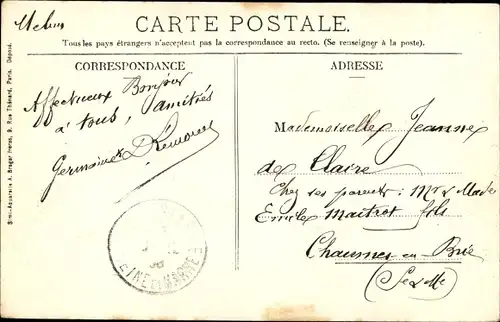 Melun
CARTE POSTALE.
Tous les pays étrangers n'acceptent pas la correspondance au recto. (Se renseigner à la poste).
CORRESPONDANCE
Affectueux Bonjour
à tous, amitiés
Germaine
ADRESSE
Mademoiselle Jeanne
de Claire
Chez ses parents : Mr & Made
Emile Maitret fils
Chaumes-en-Brie
(S-et-M)
SEINE ET MARNE
Simi-Aquarelle A. Breger Frères, 9, Rue Thénard, Paris. Déposé.